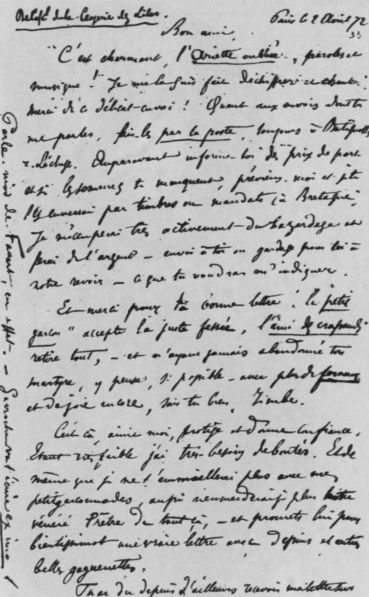 Retrét. de la Closerie des Lilas. Paris le 2 Avril 72
Bon ami,
"C'est charmant, l'Ariette oubliée, paroles et
musique ! Je me la suis fait déchiffrer et chanter !
merci de ce délicat envoi ! Quant aux envois dont tu
me parles, fais-les par la poste, toujours à Batignolles
r. Lécluse. Auparavant informe-toi des prix de port
et si les sommes te manquent, préviens-moi et je te
les enverrai par timbres ou mandats (à Bretagne).
Je m'occuperai très activement du bazardage et
ferai de l'argent – envoi à toi ou gardage pour toi à
notre revoir – ce que tu voudras m'indiquer.
Et merci pour ta bonne lettre ! Le "petit
garçon" accepte la juste fessée, l'ami des crapauds
retire tout, – et n'ayant jamais abandonné ton
martyre, y pense, si possible – avec plus de ferveur
et de joie encore, sais-tu bien, Rimbe.
C'est ça, aime-moi, protège et donne confiance.
Étant très faible j'ai très besoin de bontés. Et de
même que je ne t'emmiellerai plus avec mes
petitgarçonnades, aussi n'emmerderai-je plus notre
vénéré Prêtre de tout ça, – et promets-lui pour
bientissimot une vraie lettre avec dessins et autres
belles goguenettes.
Tu as dû depuis d'ailleurs recevoir ma lettre sur
Parle-moi de Favart, en effet.
Gavroche va t'écrire ex imo.